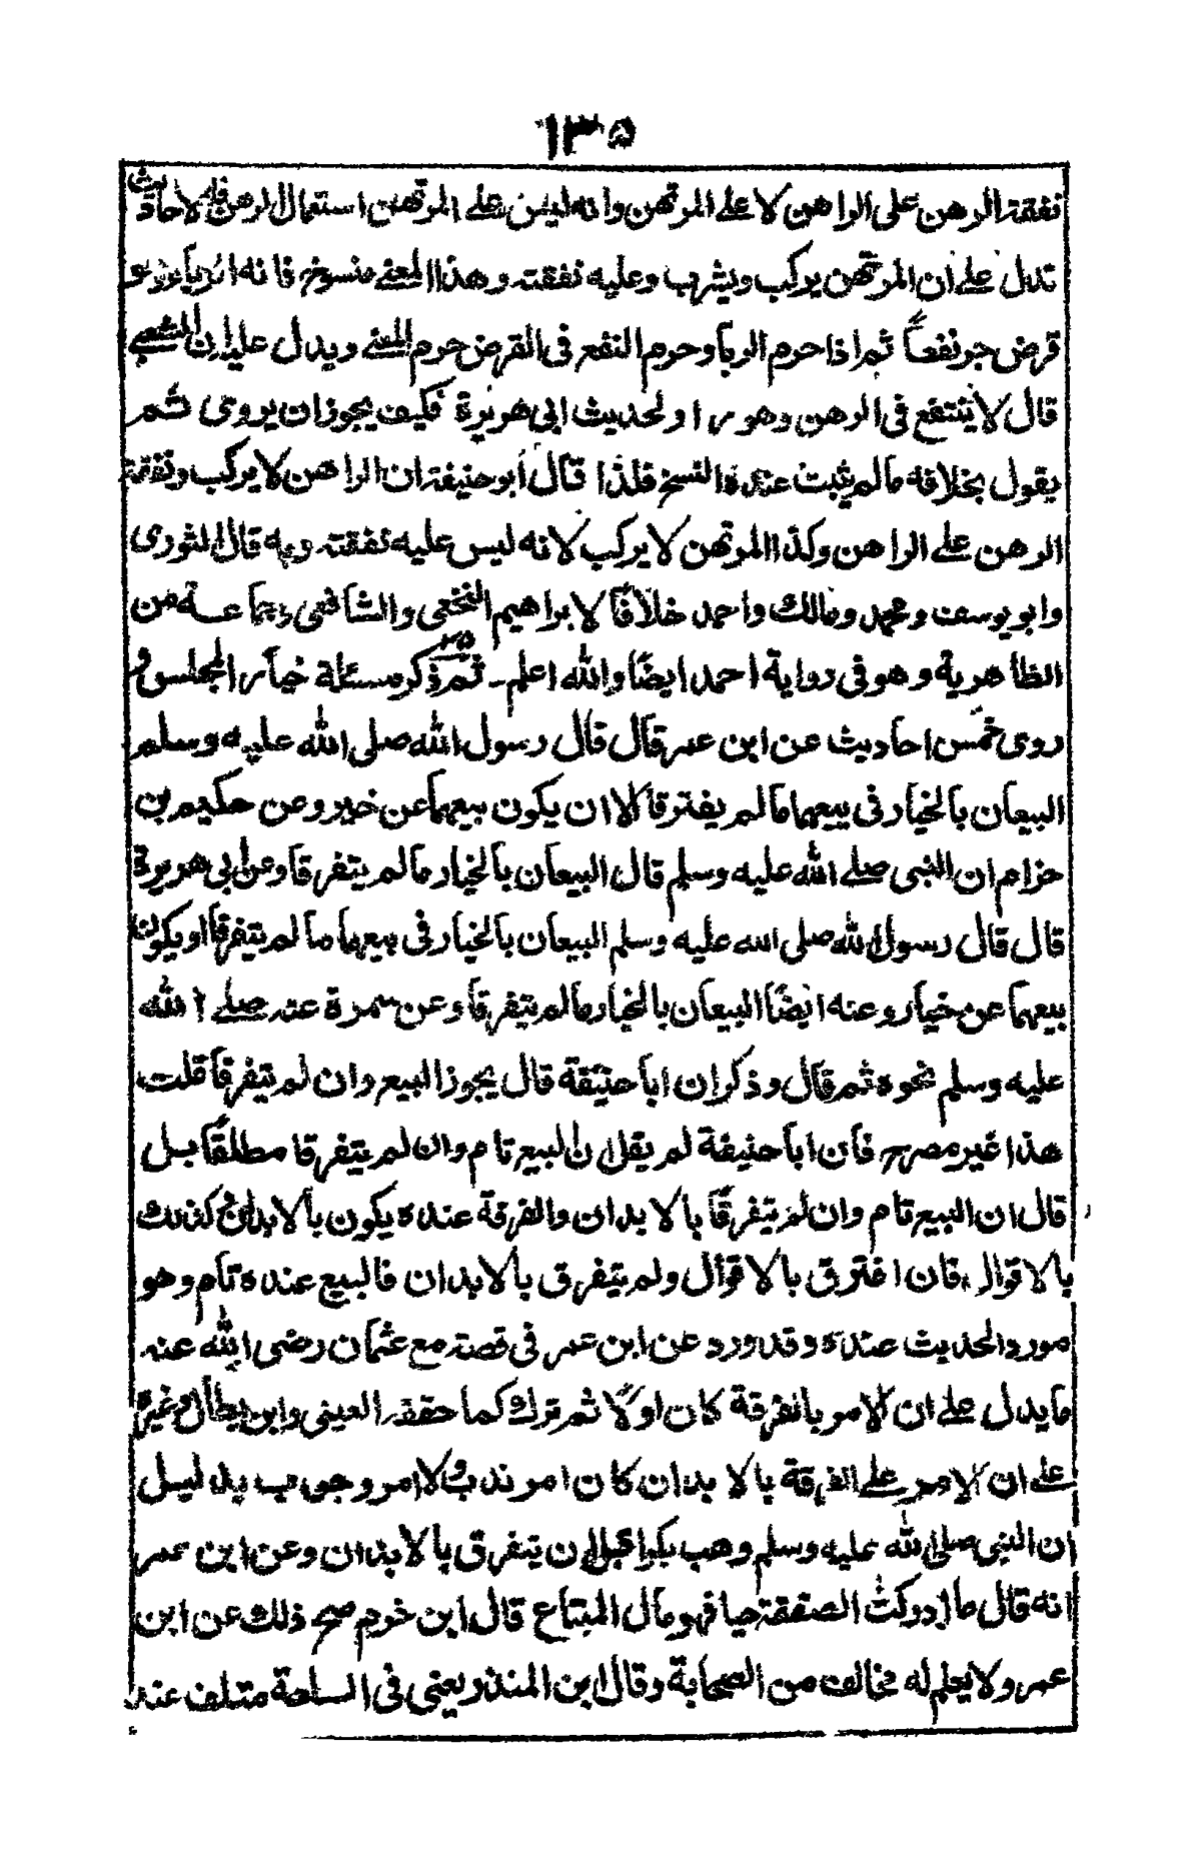 ١٣٥
نفقة الرهن على الراهن لا على المرتهن وانه ليس على المرتهن استعمال الرهن فلم لاحاديث
تدل على ان المرتهن يركب ويشرب وعليه نفقته وهذا المعنى منسوخ فانه
قرض جر نفعاً ثم اذا حرم الربا وحرم النفع فى القرض حرم المعنى ويدل عليه ان الشعبى
قال لا ينتفع فى الرهن وهو راو لحديث ابى هريرة فكيف يجوز ان يروى ثم
يقول بخلافه ما لم يثبت عنده النسخ فلذا قال أبو حنيفة ان الراهن لا يركب ونفقة
الرهن على الراهن وكذا المرتهن لا يركب لانه ليس عليه نفقته وبه قال الثورى
وابو يوسف ومحمد ومالك واحمد خلافاً لابراهيم النخعى والشافعى وجماعة من
الظاهرية وهو فى رواية احمد ايضاً والله اعلم۔ ثم ذكر مسئلة خيار المجلس و
روى خمس احاديث عن ابن عمر قال قال رسول الله صلى الله عليه وسلم
البيعان بالخيار فى بيعهما ما لم يفترقا الا ان يكون بيعهما عن خير وعن حكيم بن
حزام ان النبى صلى الله عليه وسلم قال البيعان بالخيار ما لم يتفرقا وعن ابى هريرة
قال قال رسول الله صلى الله عليه وسلم البيعان بالخيار فى بيعهما ما لم يتفرقا او يكونا
بيعهما عن خيار وعنه ايضاً البيعان بالخيار ما لم يتفرقا وعن سمرة عنه صلى الله
عليه وسلم نحوه ثم قال وذكر ان ابا حنيفة قال يجوز البيع وان لم يتفرقا قلت
هذا غير مصرح فان ابا حنيفة لم يقل ان البيع تام وان لم يتفرقا مطلقاً بل
قال ان البيع تام وان لم يتفرقا بالابدان والفرقة عنده يكون بالابدان وكذلك
بالاقوال فان افترق بالاقوال ولم يتفرق بالابدان فالبيع عنده تام وهو
مورد الحديث عنده وقد ورد عن ابن عمر فى قصة مع عثمان رضى الله عنه
ما يدل على ان الامر بالفرقة كان اولاً ثم ترك كما حققه العينى وابن بطال وغيره
على ان الامر على الفرقة بالابدان كان امر ندب ولا امر وجوب بدليل
ان النبى صلى الله عليه وسلم وهب بكرا قبل ان يتفرق بالابدان وعن ابن عمر
انه قال ما ادركت الصفقة حيا فهو مال المبتاع قال ابن خرم صح ذلك عن ابن
عمر ولا يعلم له مخالف من الصحابة وقال ابن المنذر يعنى فى السلعة متلف عند